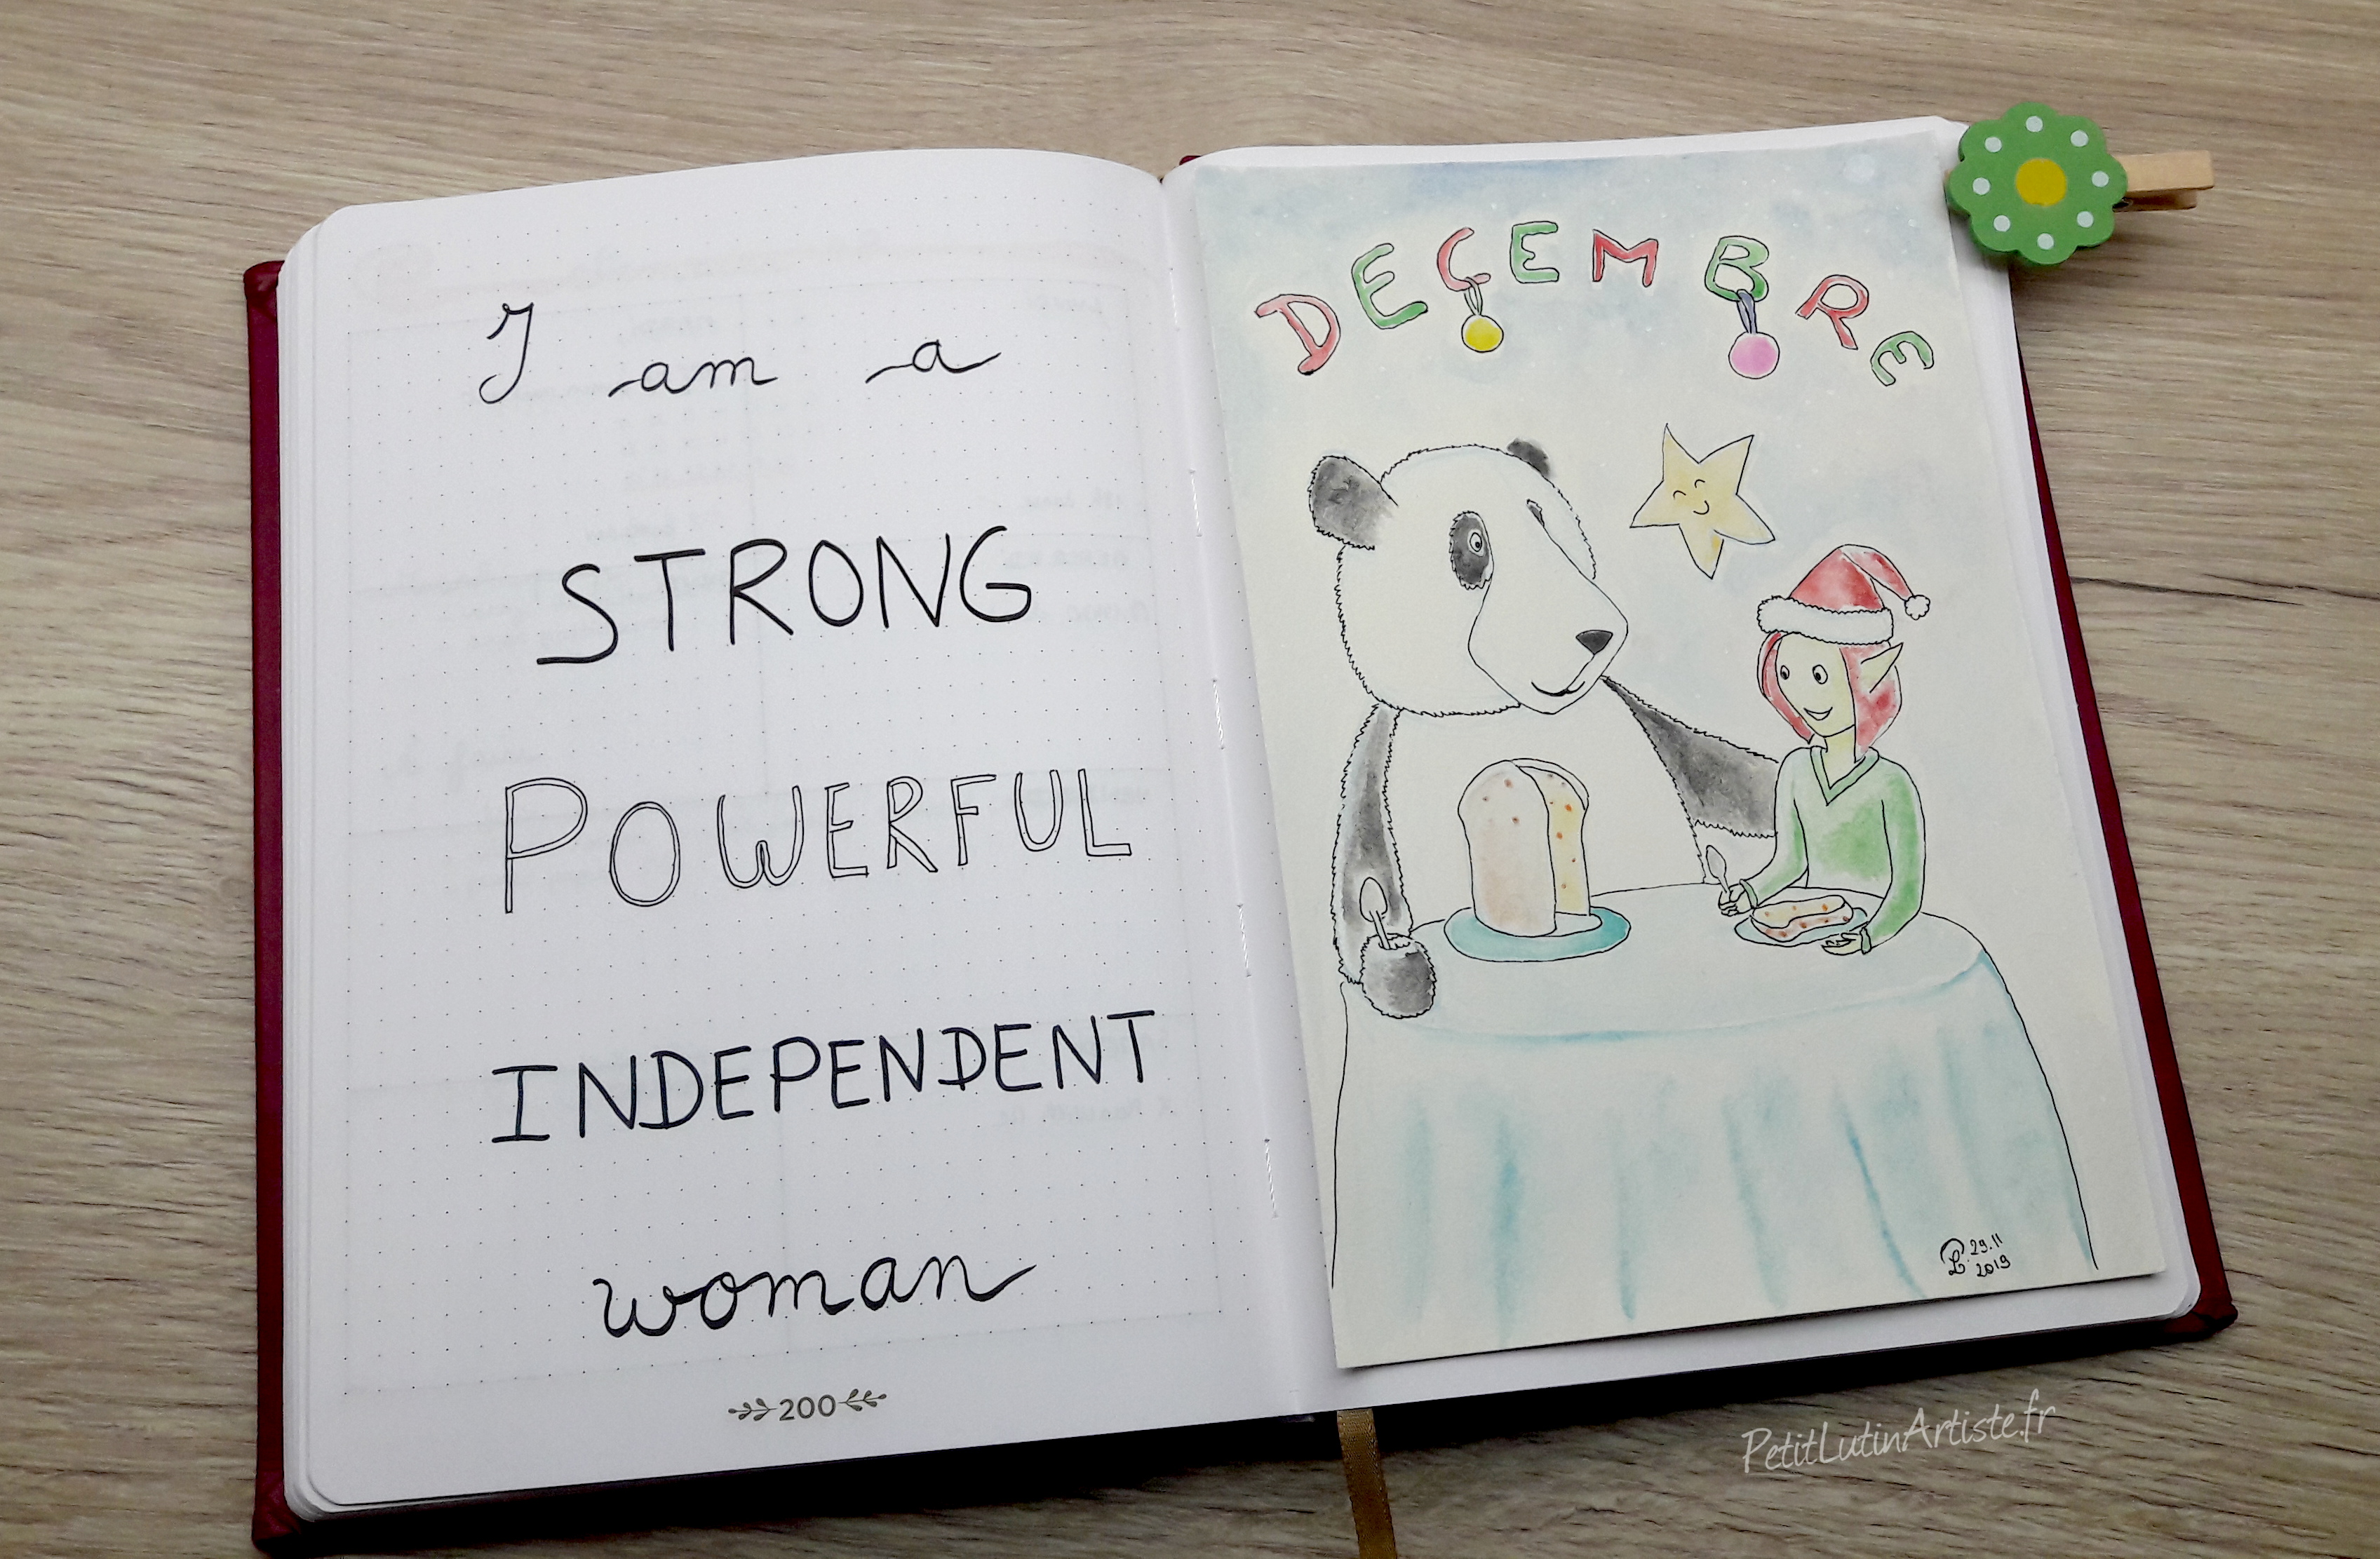 I am a
STRONG
POWERFUL
INDEPENDENT
woman
200
DECEMBRE
29.11
2019
PetitLutinArtiste.fr